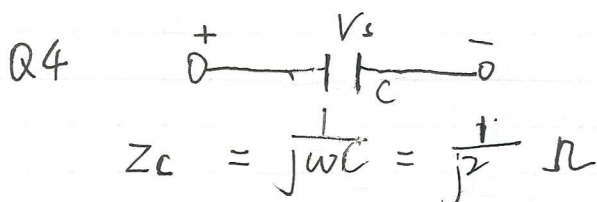 Q4 + Vs -
C
Zc = 1/jωC = 1/j2 Ω